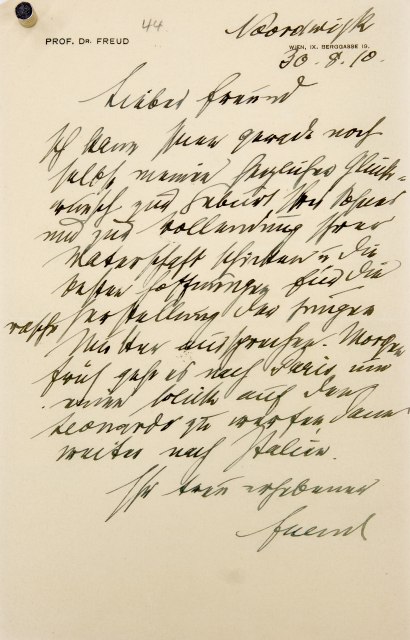 44
Noordwijk
PROF. DR. FREUD
WIEN, IX. BERGGASSE 19.
30. 8. 10.
Lieber Freund
Ich kann Ihnen gerade noch
selbst meinen herzlichen Glück-
wunsch zur Geburt Ihres Sohnes
und zur Vollendung Ihrer
Vaterschaft schicken u die
besten Hoffnungen für die
rasche Herstellung der jungen
Mutter aussprechen. Morgen
früh geht es nach Paris, um
einen Blick auf den
Leonardo zu werfen, dann
weiter nach Italien.
Ihr treu ergebener
Freud